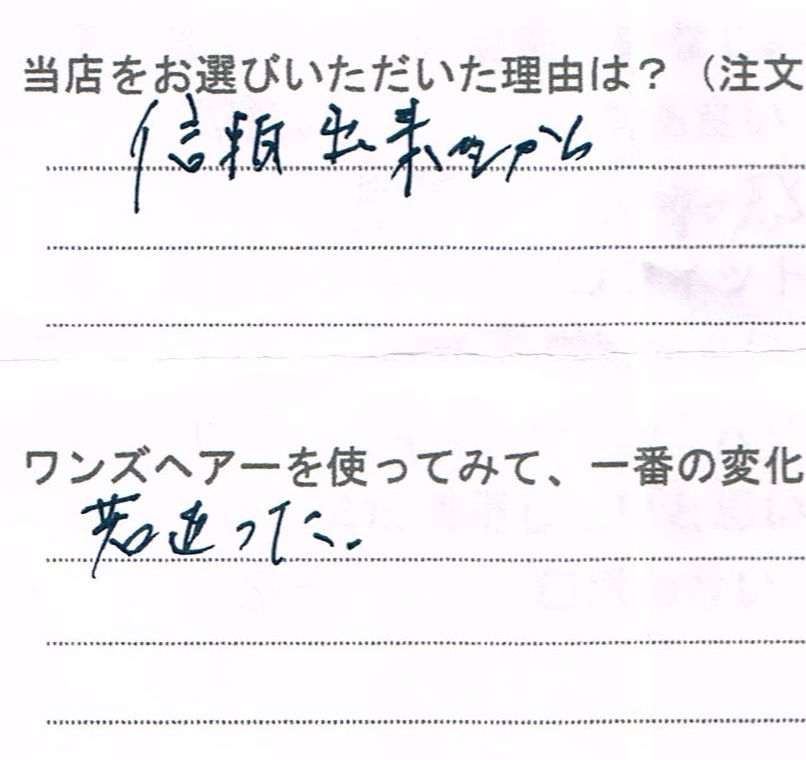 当店をお選びいただいた理由は？（注文
信頼出来るから
ワンズヘアーを使ってみて、一番の変化
若返った。